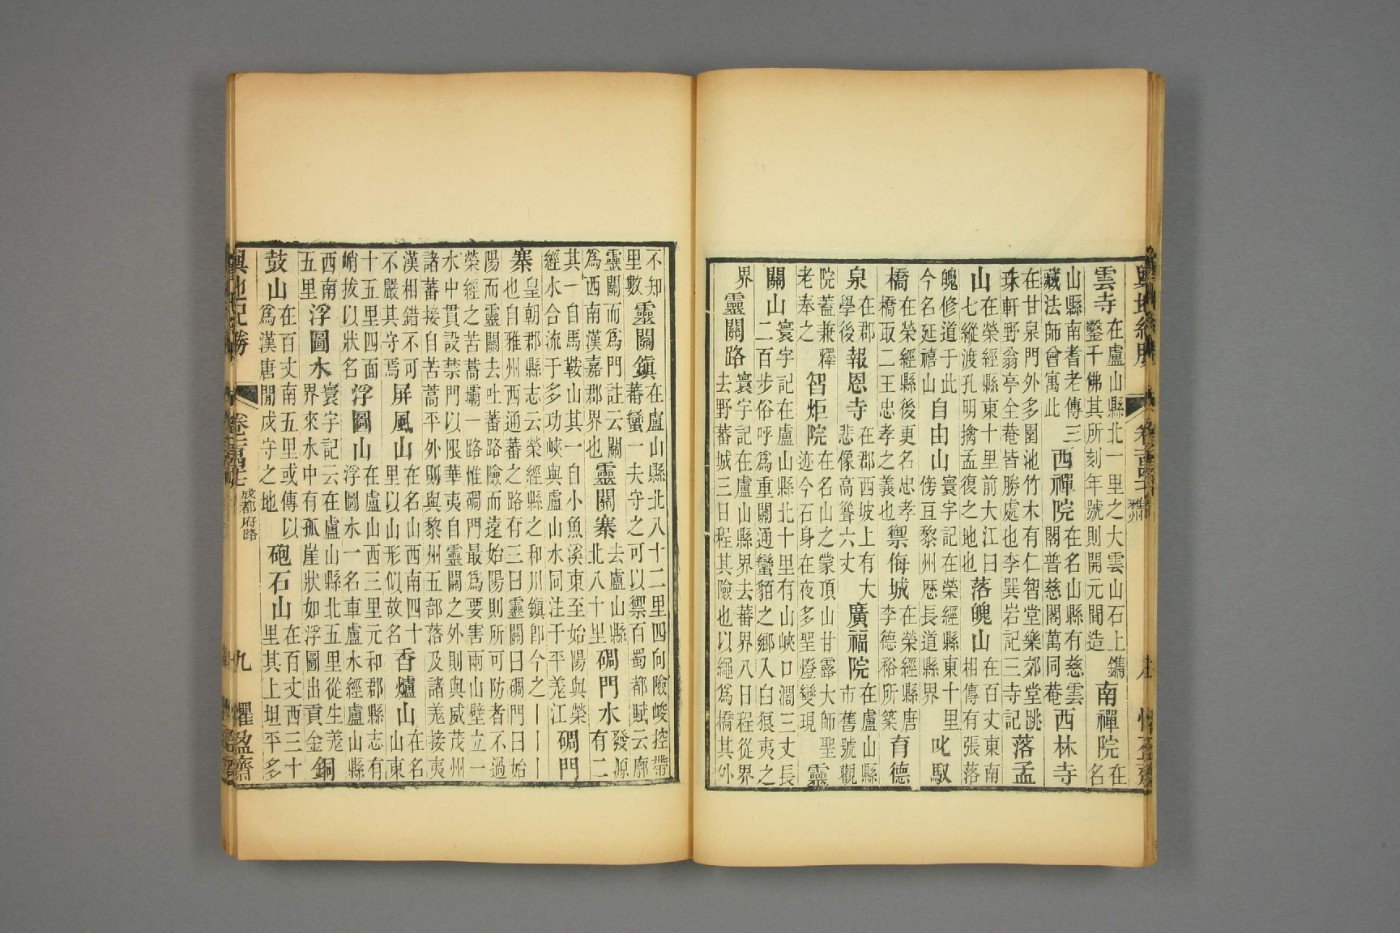 雲寺在盧山縣北一里之大雲山石上鐫
鑿千佛其所刻年號則開元間造南禪院在名
山縣南耆老傳三
藏法師曾寓此西禪院在名山縣有慈雲
閣普慈閣萬同菴西林寺
在甘泉門外多園池竹木有仁智堂樂郊堂跳
珠軒野翁亭全菴皆勝處也李巽巖記三寺記落孟
山在榮經縣東十里前大江曰
七縱渡孔明擒孟復之地也落魄山在百丈東南
相傳有張落
魄修道于此
今名延禧山自由山寰宇記在榮經縣東十里
傍亘黎州歷長道縣界叱馭
橋在榮經縣後更名忠孝
橋取二王忠孝之義也禦侮城在榮經縣唐
李德裕所築育德
泉在郡
學後報恩寺在郡西坡上有大
悲像高聳六丈廣福院在盧山縣
市舊號觀
院蓋兼釋
老奉之智炬院在名山之蒙頂山甘露大師聖
迹今石身在夜多聖燈變現靈
關山寰宇記在盧山縣北十里有山峽口濶三丈長
二百步俗呼爲重關通蠻貊之鄉入白狼夷之
界靈關路寰宇記在盧山縣界去蕃界八日程從界
去野蕃城三日程其險也以繩爲橋其外
不知
里數靈關鎮在盧山縣北八十二里四向險峻控帶
蕃蠻一夫守之可以禦百蜀都賦云廓
靈關而爲門註云關
爲西南漢嘉郡界也靈關寨去盧山縣
北八十里碉門水發源
有二
其一自馬鞍山其一自小魚溪東至始陽與榮
經水合流于多功峽與盧山水同注于平羗江碉門
寨皇朝郡縣志云榮經縣之和川鎮卽今之｜｜｜
也自雅州西通蕃之路有三曰靈關曰碉門曰始
陽而靈關去吐蕃路險而遠始陽則所可防者不過
榮經之苦蒿壩一路惟碉門最爲要害兩山壁立一
水中貫設禁門以限華夷自靈關之外則與威茂州
諸蕃接自苦蒿平外則與黎州五部落及諸羗接夷
漢相錯不可
不嚴其守焉屏風山在名山西南四十
里以山形似故名香爐山在名
山東
十五里四面
峭拔以狀名浮圖山在盧山西三里元和郡縣志有
浮圖水一名車盧水經盧山縣
西南
五里浮圖水寰宇記云在盧山縣北五里從生羗
界來水中有孤崖狀如浮圖出貢金銅
鼓山在百丈南五里或傳以
爲漢唐閒戍守之地砲石山在百丈西三十
里其上坦平多
輿地紀勝
成都府路
九
懼盈齋